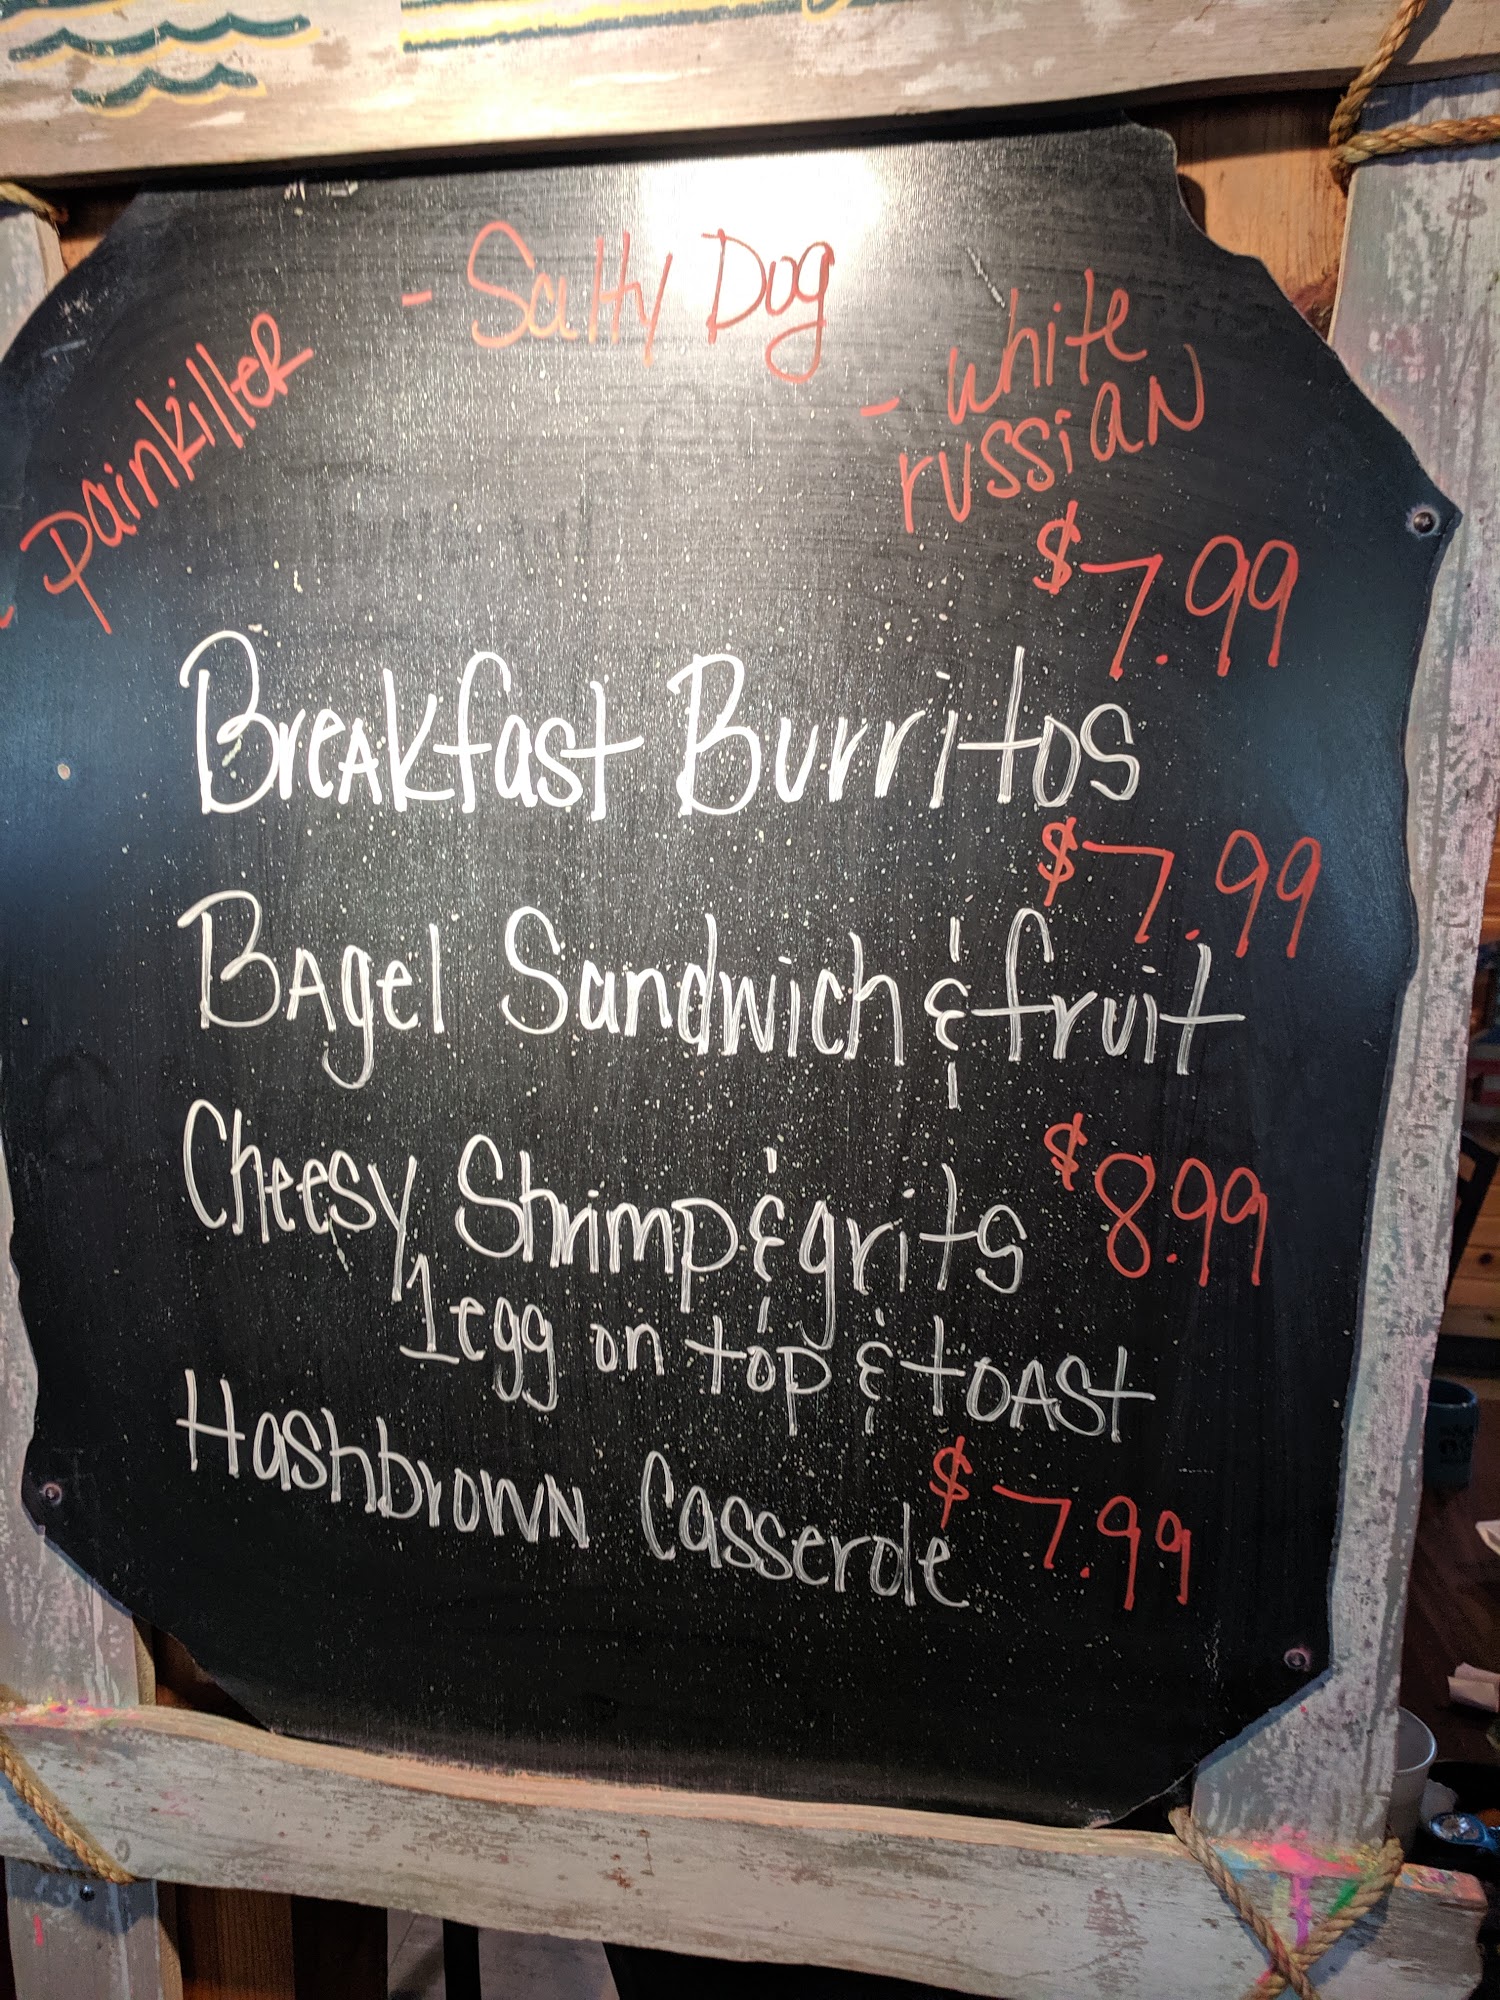 - Painkiller
- Salty Dog
- white
russian
$7.99
Breakfast Burritos
$7.99
Bagel Sandwich & fruit
Cheesy Shrimp & grits $8.99
1 egg on top & toast
Hashbrown Casserole $7.99